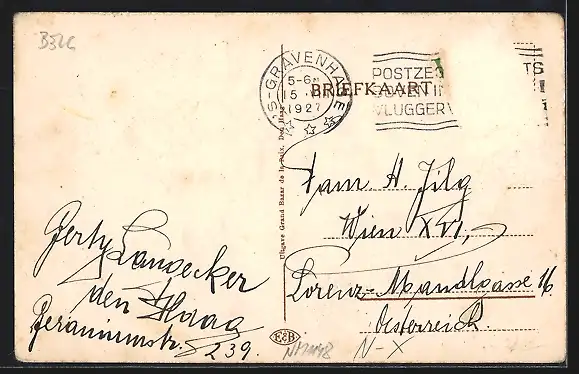 B526
'S-GRAVENHAGE
5-6N
15
1927
POSTZEG
BOVEN IN
VLUGGER
TS
BRIEFKAART
Uitgave Grand Bazar de la Paix, Den Haag
Fam H. Jilg
Wien XVI,
Lorenz-Mandlgasse 16
Österreich.
Gerty Landecker
den Haag
Geraniumstr. 239.
E&B
N-X